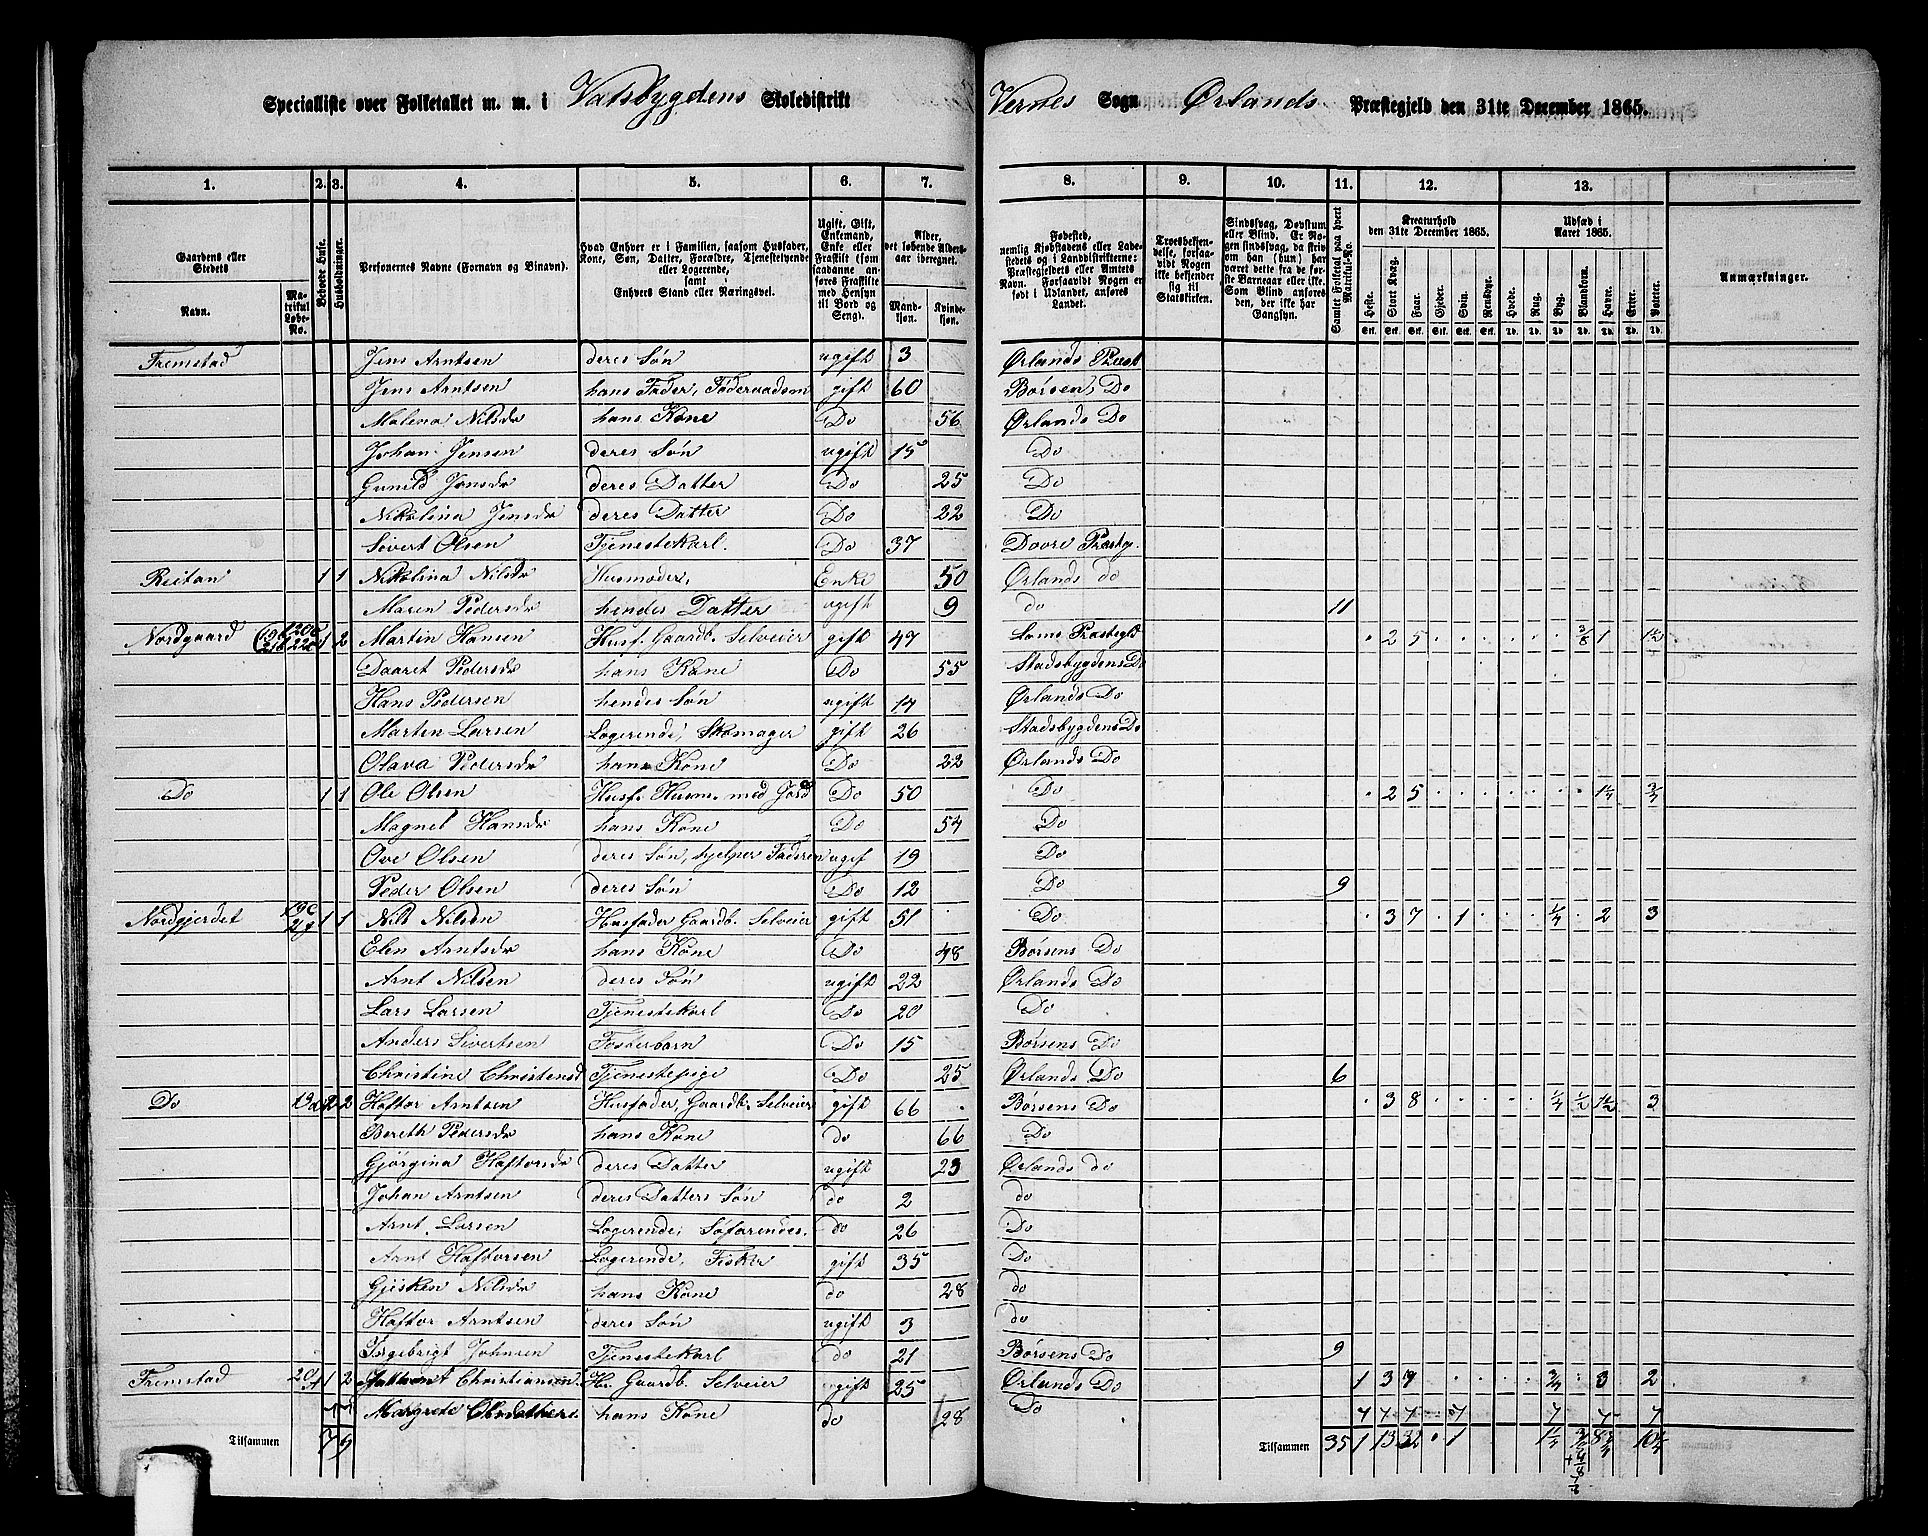 Specialliste over Folketallet m. m. i Vatsbygdens Skoledistrikt
Vernes Sogn Ørlands Præstegjeld den 31te December 1865.
1. 2. 3. 4. 5. 6. 7. 8. 9. 10. 11. 12. 13.
Gaardens eller Stedets
Navn.
Matrikul Løbe-No.
Beboede Huse.
Husholdninger.
Personernes Navne (Fornavn og Binavn).
Hvad Enhver er i Familien, saasom Husfader, Kone, Søn, Datter, Forældre, Tjenestetyende eller Logerende, samt Enhvers Stand eller Næringsvei.
Ugift, Gift, Enkemand, Enke eller Fraskilt (som saadanne anføres Fraskilte med Hensyn til Bord og Seng).
Alder, det løbende Aldersaar iberegnet.
Mandkjøn. Kvindekjøn.
Fødested, nemlig Kjøbstadens eller Ladestedets og i Landdistrikterne: Præstegjeldets eller Amtets Navn. Forsaavidt Nogen er født i Udlandet, anføres Landet.
Troesbekjendelse, forsaavidt Nogen ikke bekjender sig til Statskirken.
Sindssvag, Døvstum eller Blind. Er Nogen sindssvag, da skriv om han (hun) har været dette fra de første Barneaar eller ikke. Som Blind anføres den, der ikke har Gangsyn.
Samlet Folketal paa hvert Matrikul-No.
Kreaturhold den 31te December 1865.
Udsæd i Aaret 1865.
Heste. Stort Kvæg. Faar. Gjeder. Svin. Rensdyr. Hvede. Rug. Byg. Blandkorn. Havre. Erter. Poteter.
Anmærkninger.
Fremstad Jens Arntsen deres Søn ugift 3 Ørlands Præst
Jens Arntsen hans Fader, Føderaadsm gift 60 Børsen, Do
Malena Nilsdr hans Kone Do 56 Ørlands Do
Johan Jensen deres Søn ugift 15 Do
Gunild Jensdr deres Datter Do 25 Do
Nikolina Jensdr deres Datter Do 22 Do
Sivert Olsen Tjenestekarl. Do 37 Dovre Præstg.
Reitan 1 1 Nikolina Nilsdr Husmoder, Enke 50 Ørlands do
Maren Pedersdr hendes Datter ugift 9 do 11
Nordgaard 1 2 Martin Hansen Husf. Gaardb. Selveier gift 47 Loms Præstegld · 2 5 · · · · · · 3/8 1 · 1 1/2
Daaret Pedersdr hans Kone Do 55 Stadsbygdens Do
Hans Pedersen hendes Søn ugift 14 Ørlands Do
Marten Larsen Logerende, Skomager gift 26 Stadsbygdens Do
Olava Pedersdr hans Kone Do 22 Ørlands Do
Do 1 1 Ole Olsen Husf. Husm. med Jord Do 50 Do · 2 5 · · · · · · · 1 1/4 · 3/4
Magnel Hansdr hans Kone Do 54 Do
Ove Olsen deres Søn, hjelper Faderen ugif 19 Do
Peder Olsen deres Søn Do 12 Do 9
Nordgjerdet 19c 2g 1 1 Nils Nilsen Husfader Gaardb. Selveier gift 51 Do · 3 7 · 1 · · · 1/4 · 2 3
Elen Arntsdr hans Kone Do 48 Børsens Do
Arnt Nilsen deres Søn ugift 22 Ørlands Do
Lars Larsen Tjenestekarl Do 20 Do
Anders Sivertsen Fosterbarn Do 15 Børsens Do
Christine Christensd Tjenestepige Do 25 Ørlands Do 6
Do 2 2 Haftor Arntsen Husfader, Gaardb. Selveier gift 66 Børsens Do · 3 8 · · · · · 1/4 1/2 1 1/2 3
Bereth Pedersdr hans Kone do 66 Do
Gjørgina Haftorsdr deres Datter ugift 23 Ørlands do
Johan Arntsen deres Datters Søn do 2 do
Arnt Larsen Logerende, Søfarendes. do 26 Do
Arnt Haftorsen Logerende, Fisker gift 35 Do
Gjesken Nilsdr hans Kone do 28 do
Haftor Arntsen deres Søn ugift 3 do
Ingebrigt Johnsen Tjenestekarl do 21 Børsens Do 9
Fremstad 1 2 Christiansen. Gaardb. Selveier 25 Ørlands Do 1 3 7 · · · · · 3/4 · 3 2
Margrete hans Kone do 28 Do
Tilsammen 7 9 Tilsammen 35 1 13 32 · 1 10 1/4